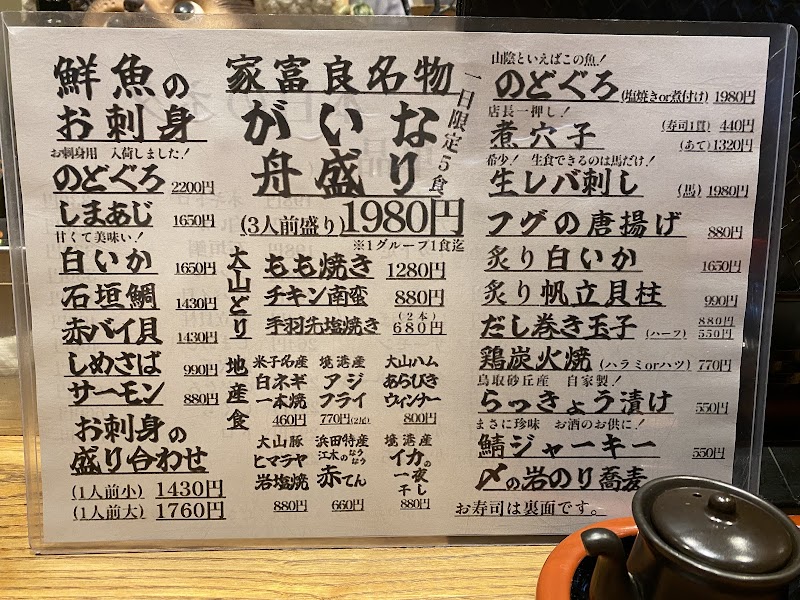 鮮魚の
お刺身
お刺身用 入荷しました!
のどぐろ 2200円
しまあじ 1650円
甘くて美味い!
白いか 1650円
石垣鯛 1430円
赤バイ貝 1430円
しめさば 990円
サーモン 880円
お刺身の
盛り合わせ
(1人前小) 1430円
(1人前大) 1760円
家富良名物
がいな
舟盛り
一日限定5食
(3人前盛り) 1980円
※1グループ1食迄
大山どり
もも焼き 1280円
チキン南蛮 880円
手羽先塩焼き (2本) 680円
地産食
米子名産
白ネギ
一本焼
460円
境港産
アジ
フライ
770円(2尾)
大山ハム
あらびき
ウィンナー
800円
大山豚
ヒマラヤ
岩塩焼
880円
浜田特産
江木のなうなう
赤てん
660円
境港産
イカの
一夜
干し
880円
山陰といえばこの魚!
のどぐろ (塩焼きor煮付け) 1980円
店長一押し!
煮穴子 (寿司1貫) 440円
(あて) 1320円
希少! 生食できるのは馬だけ!
生レバ刺し (馬) 1980円
フグの唐揚げ 880円
炙り白いか 1650円
炙り帆立貝柱 990円
だし巻き玉子 880円
(ハーフ) 550円
鶏炭火焼 (ハラミorハツ) 770円
鳥取砂丘産 自家製!
らっきょう漬け 550円
まさに珍味 お酒のお供に!
鯖ジャーキー 550円
〆の岩のり蕎麦
お寿司は裏面です。